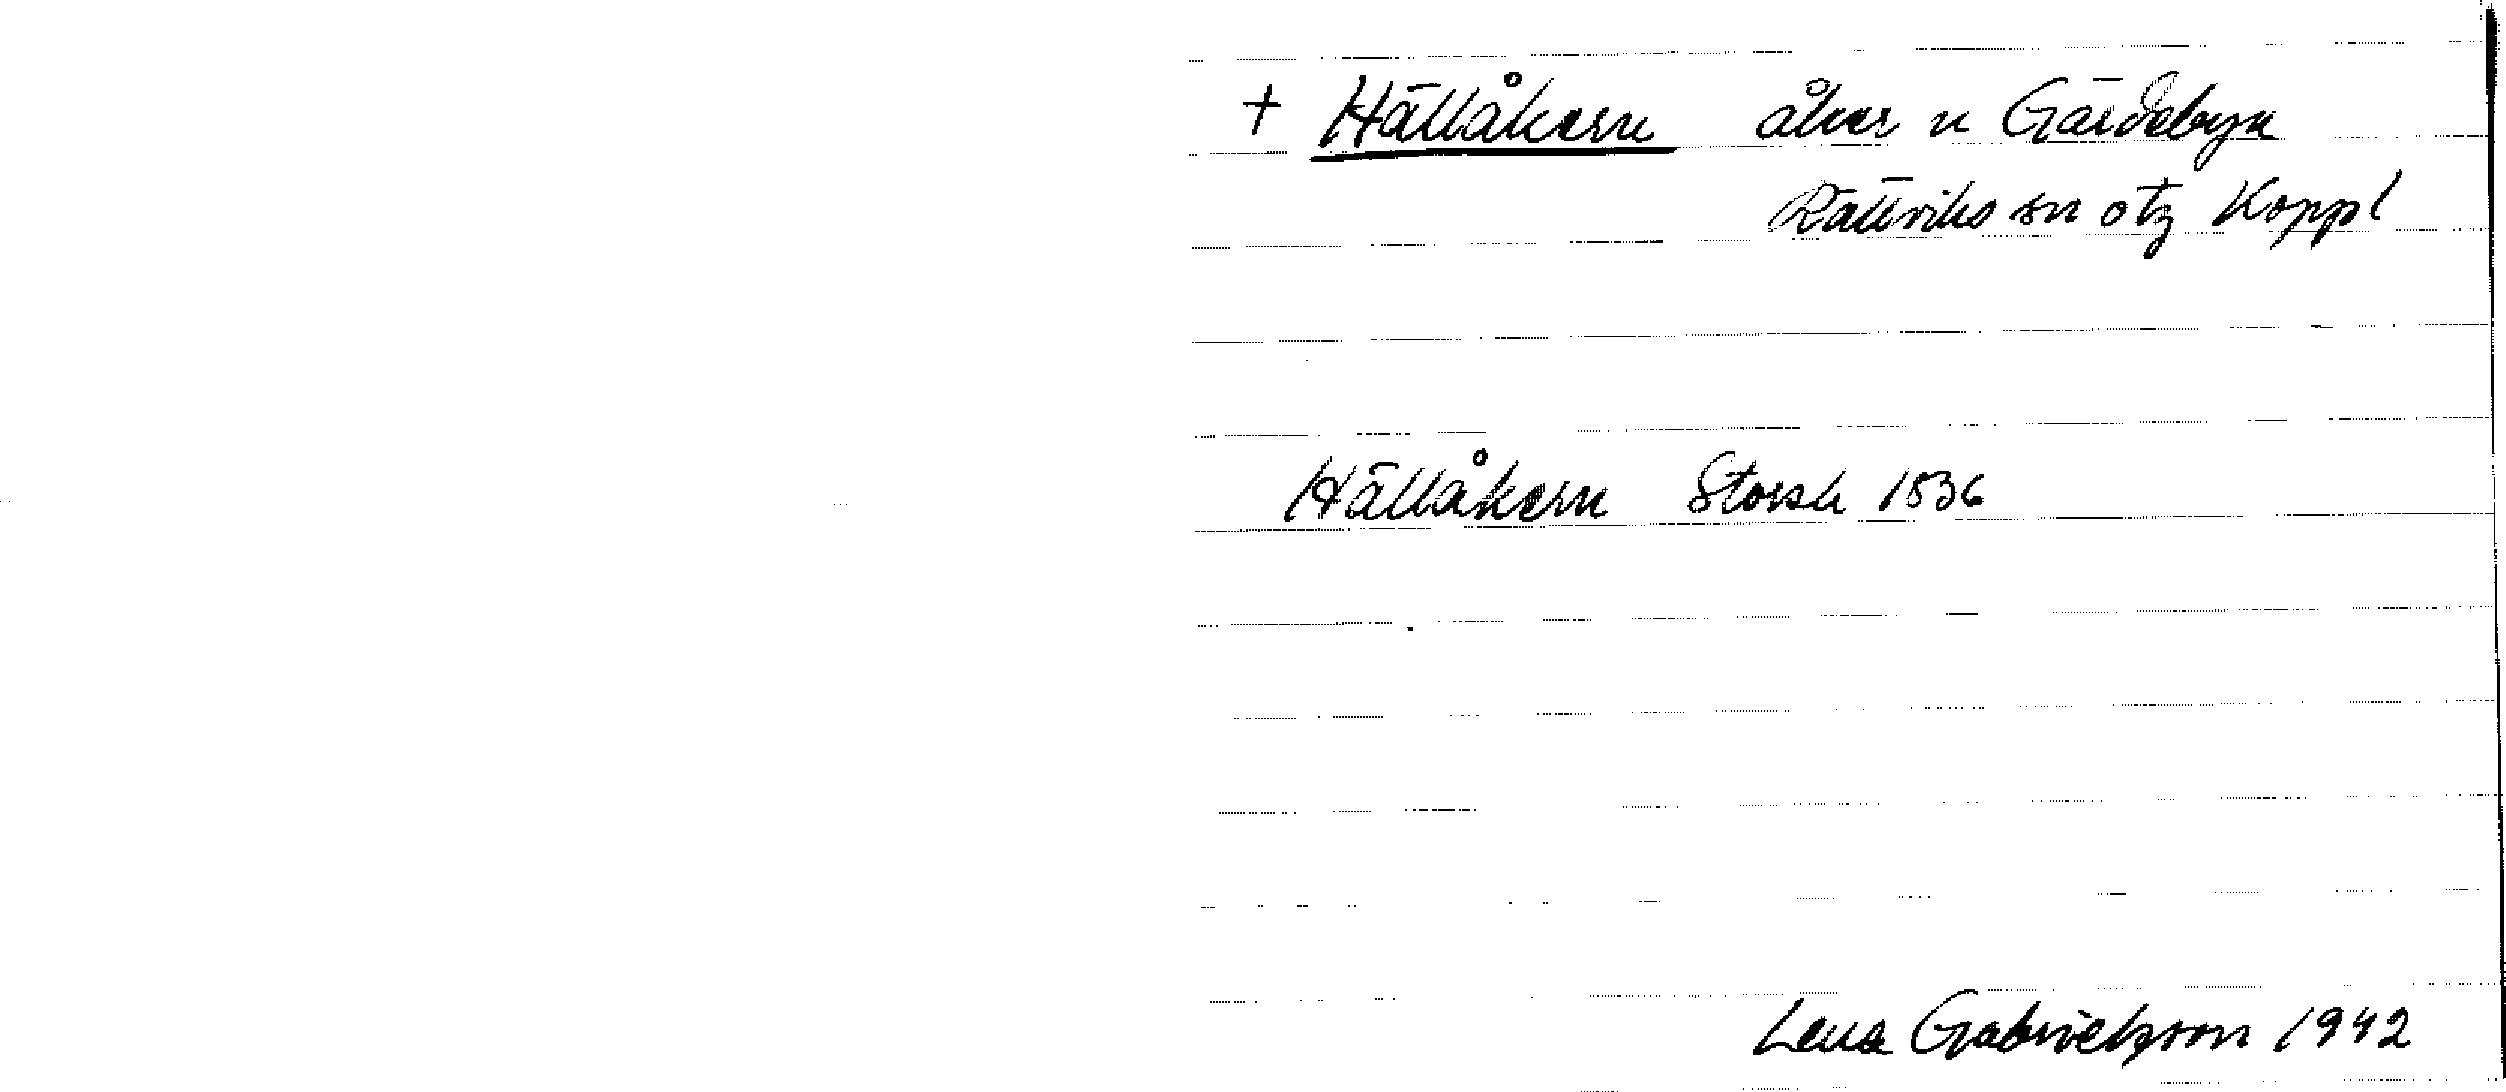 + Hällåkern åker n Gärdebyn
Rättviks sn otg Koppl
Hällåkern Storsk 1836
Lena Gabrielsson 1942